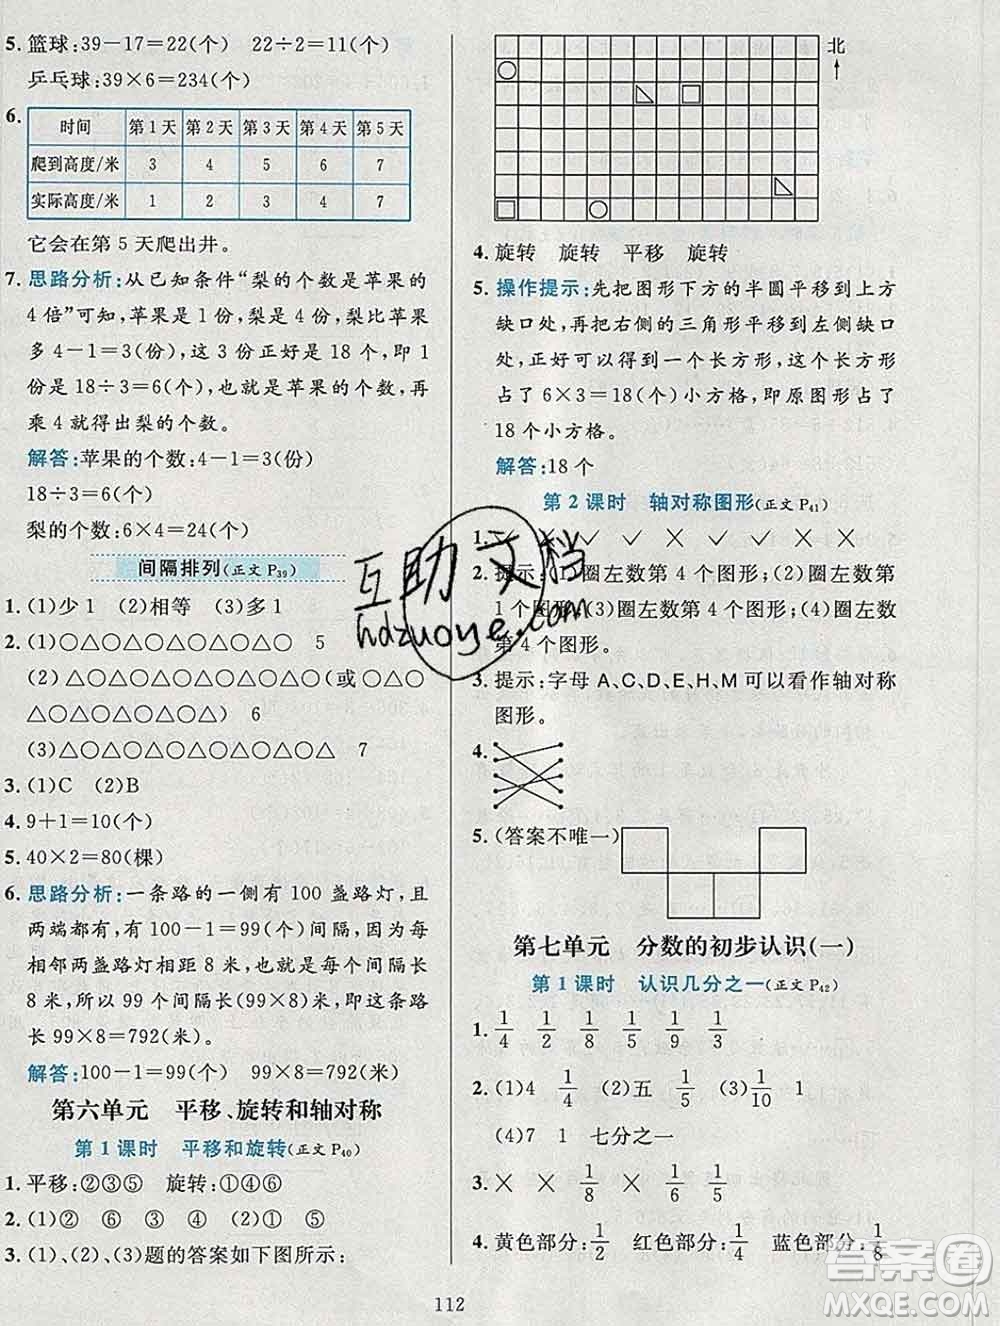 5. 篮球:39－17＝22(个)　22÷2＝11(个)
乒乓球:39×6＝234(个)
6.
时间　第1天　第2天　第3天　第4天　第5天
爬到高度/米　3　4　5　6　7
实际高度/米　1　2　3　4　7
它会在第 5 天爬出井。
7. 思路分析:从已知条件“梨的个数是苹果的
4 倍”可知，苹果是 1 份，梨是 4 份，梨比苹果
多 4－1＝3(份)，这 3 份正好是 18 个，即 1
份是 18÷3＝6(个)，也就是苹果的个数，再
乘 4 就得出梨的个数。
解答:苹果的个数:4－1＝3(份)
18÷3＝6(个)
梨的个数:6×4＝24(个)
间隔排列(正文 P39)
1. (1)少 1　(2)相等　(3)多 1
2. (1)○△○△○△○△○△　5
(2)○△○△○△○△○△○(或 ○△○△
○△○△○△○△○)　6
(3)△○△○△○△○△○△○△　7
3. (1)C　(2)B
4. 9＋1＝10(个)
5. 40×2＝80(棵)
6. 思路分析:一条路的一侧有 100 盏路灯，且
两端都有，有 100－1＝99(个)间隔，因为每
相邻两盏路灯相距 8 米，也就是间隔长
8 米，所以 99 个间隔长 99×8，即这条路
长 99×8＝792(米)。
解答:100－1＝99(个)　99×8＝792(米)
第六单元　平移、旋转和轴对称
第 1 课时　平移和旋转(正文 P40)
1. 平移:②③⑤　旋转:①④⑥
2. (1)②　⑥　③　(2)①　⑤
3. (1)、(2)、(3)题的答案如下图所示:
北
4. 旋转　旋转　平移　旋转
5. 操作提示:先把图形下方的半圆平移到上方
缺口处，再把右侧的三角形平移到左侧缺口
处，正好可以得到一个长方形，这个长方形
占了 6×3＝18(个)小方格，即原图形占了
18 个小方格。
解答:18 个
第 2 课时　轴对称图形(正文 P41)
1. × √ √ √ × × √ × √ ×
2. 提示:(1)圈左数第 4 个图形;(2)圈左数第
1 个图形;(3)圈左数第 4 个图形;(4)圈左
数第 4 个图形。
3. 提示:字母 A、C、D、E、H、M 可以看作轴对称
图形。
4.
5. (答案不唯一)
第七单元　分数的初步认识(一)
第 1 课时　认识几分之一(正文 P42)
1. 1/4　1/8　1/5　1/9　1/3
2. (1)4　1/4　(2)五　1/5　(3)1　1/2
(4)7　1　七分之一
3. ×　×　1/8　×　1/6　1/5
4. 黄色部分:1/2　红色部分:1/4　蓝色部分:1/8
112
互助文档
hdzuoye.com
答案圈
MXQE.COM